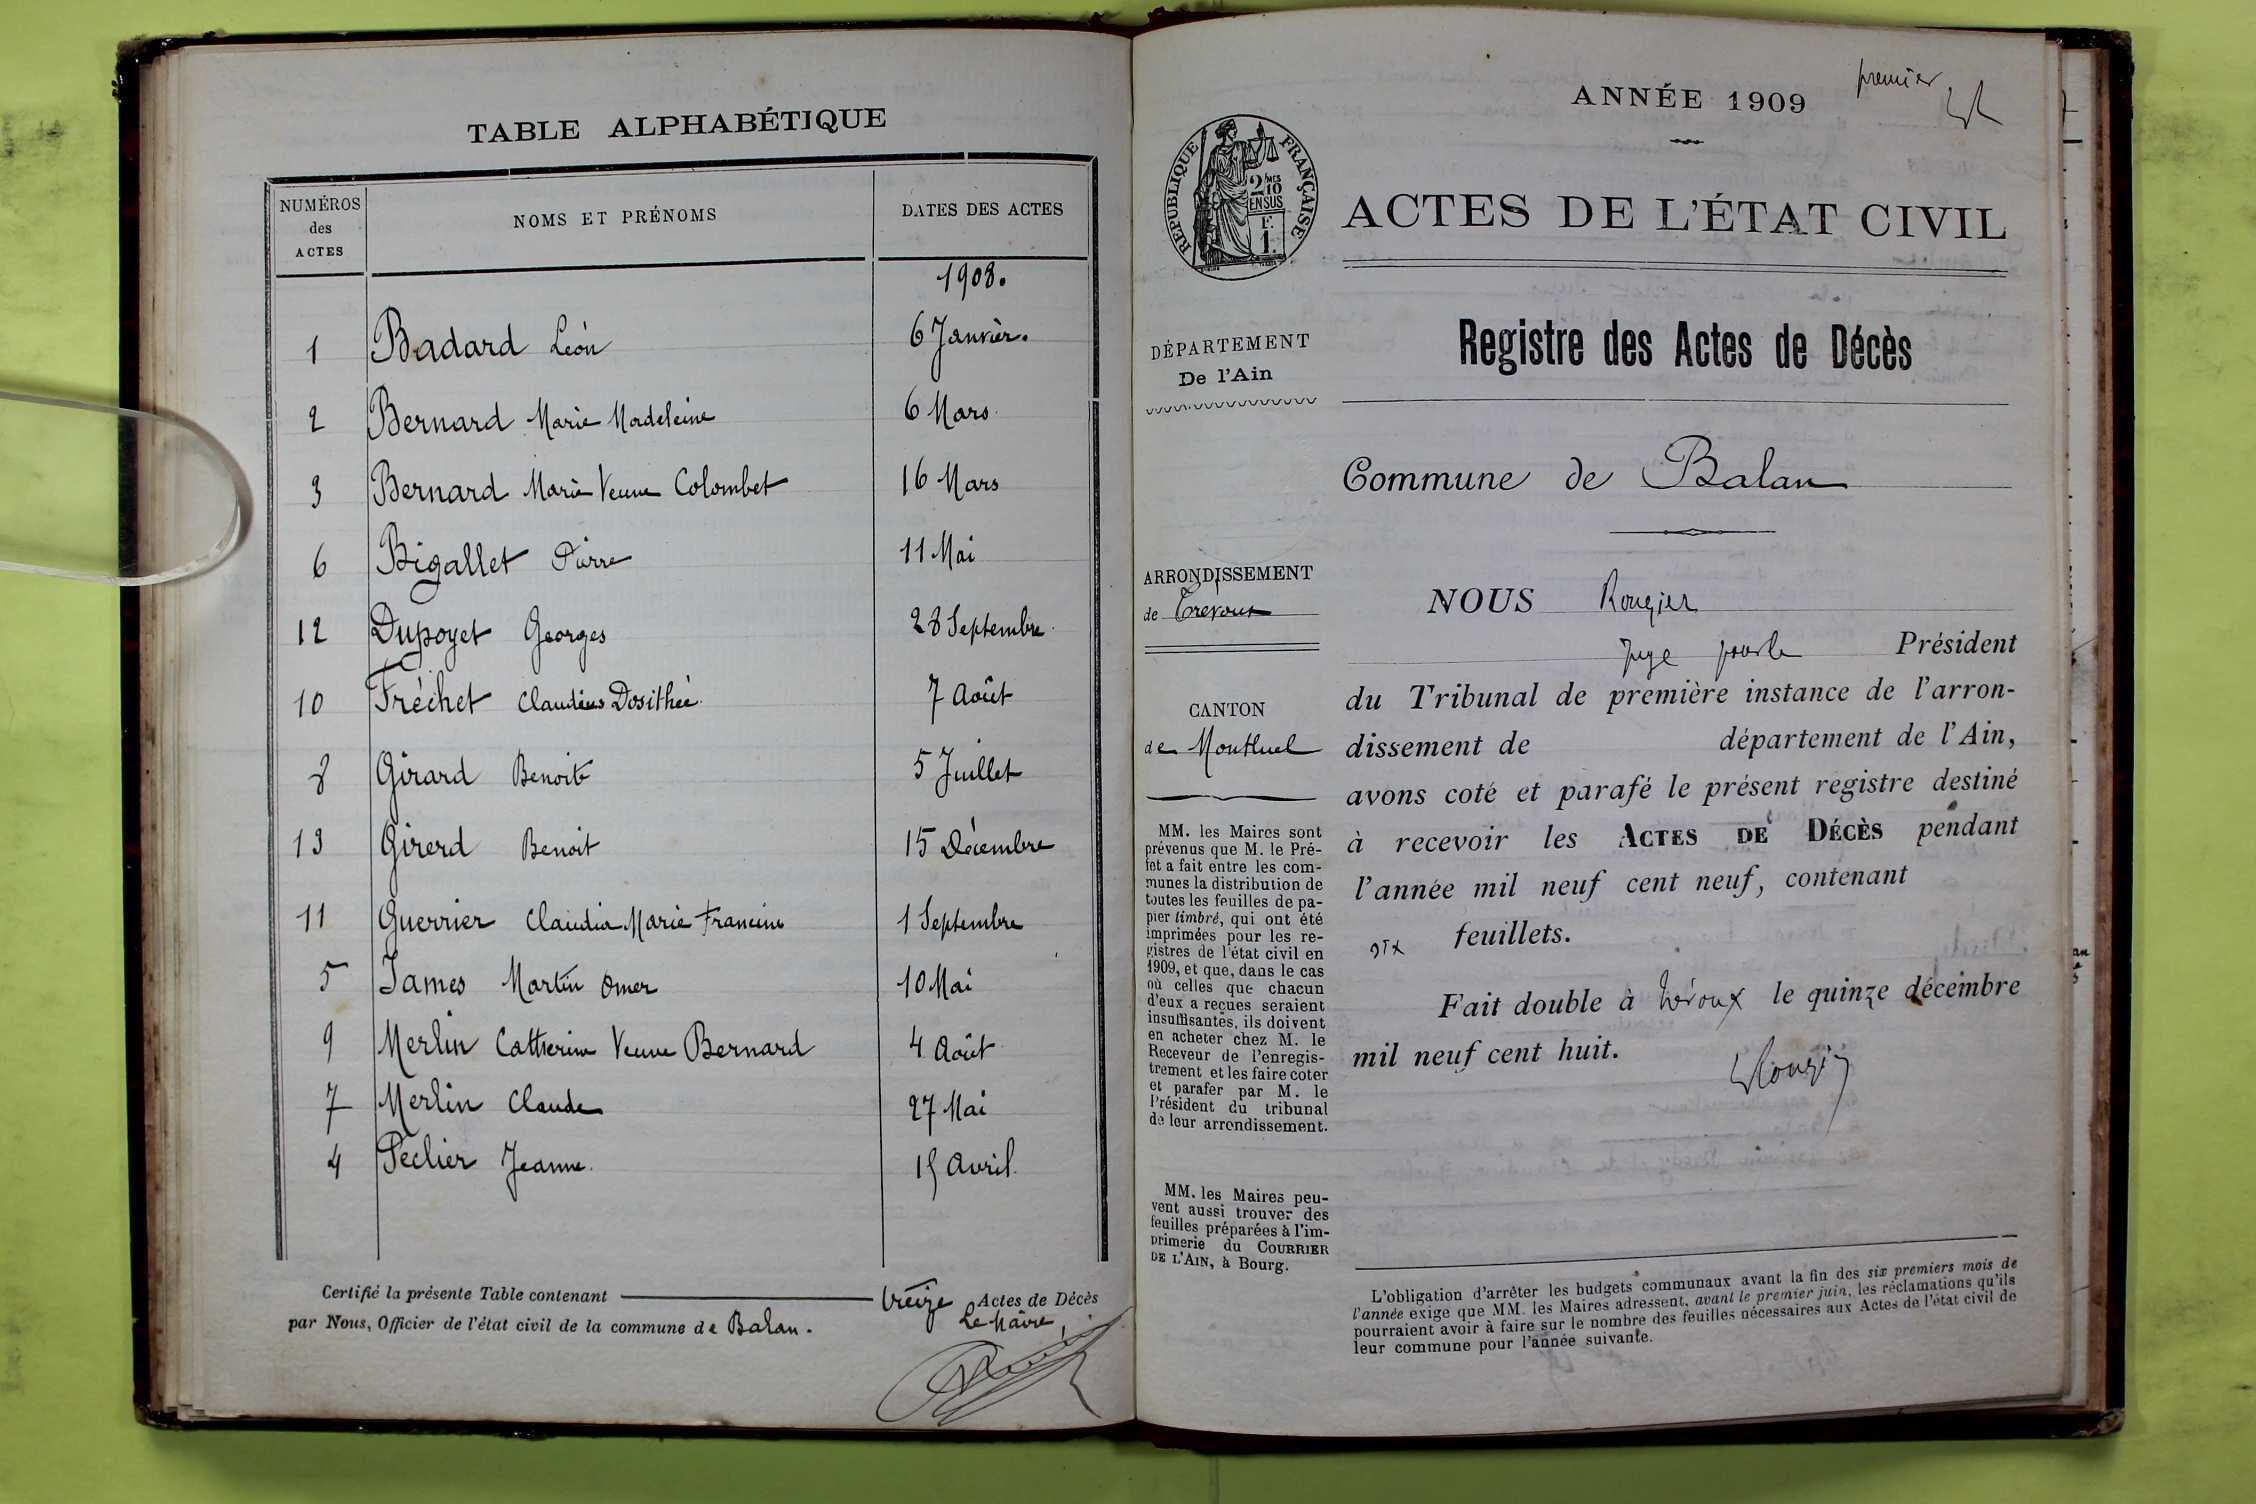 TABLE ALPHABÉTIQUE
NUMÉROS
des
ACTES
NOMS ET PRÉNOMS
DATES DES ACTES
1908.
1 Badard Léon 6 Janvier.
2 Bernard Marie Madeleine 6 Mars
3 Bernard Marie Veuve Colombet 16 Mars
6 Bigallet Pierre 11 Mai
12 Dupoyet Georges 28 Septembre
10 Fréchet Claudius Dosithée 7 Août
8 Girard Benoite 5 Juillet
13 Girerd Benoit 15 Décembre
11 Guerrier Claudia Marie Francine 1 Septembre
5 James Martin Omer 10 Mai
9 Merlin Catherine Veuve Bernard 4 Août
7 Merlin Claude 27 Mai
4 Péclier Jeanne 15 Avril
Certifié la présente Table contenant treize Actes de Décès
par Nous, Officier de l'état civil de la commune de Balan.
Le Maire,
premier
ANNÉE 1909
RÉPUBLIQUE FRANÇAISE
2/10MES
EN SUS
F.
1.
ACTES DE L'ÉTAT CIVIL
DÉPARTEMENT
De l'Ain
Registre des Actes de Décès
Commune de Balan
ARRONDISSEMENT
de Trévoux
CANTON
de Montluel
MM. les Maires sont
prévenus que M. le Pré-
fet a fait entre les com-
munes la distribution de
toutes les feuilles de pa-
pier timbré, qui ont été
imprimées pour les re-
gistres de l'état civil en
1909, et que, dans le cas
où celles que chacun
d'eux a reçues seraient
insuffisantes, ils doivent
en acheter chez M. le
Receveur de l'enregis-
trement et les faire coter
et parafer par M. le
Président du tribunal
de leur arrondissement.
MM. les Maires peu-
vent aussi trouver des
feuilles préparées à l'im-
primerie du COURRIER
DE L'AIN, à Bourg.
NOUS Rougier
juge pour le Président
du Tribunal de première instance de l'arron-
dissement de département de l'Ain,
avons coté et parafé le présent registre destiné
à recevoir les ACTES DE DÉCÈS pendant
l'année mil neuf cent neuf, contenant
six feuillets.
Fait double à Trévoux le quinze décembre
mil neuf cent huit.
Rougier
L'obligation d'arrêter les budgets communaux avant la fin des six premiers mois de
l'année exige que MM. les Maires adressent, avant le premier juin, les réclamations qu'ils
pourraient avoir à faire sur le nombre des feuilles nécessaires aux Actes de l'état civil de
leur commune pour l'année suivante.